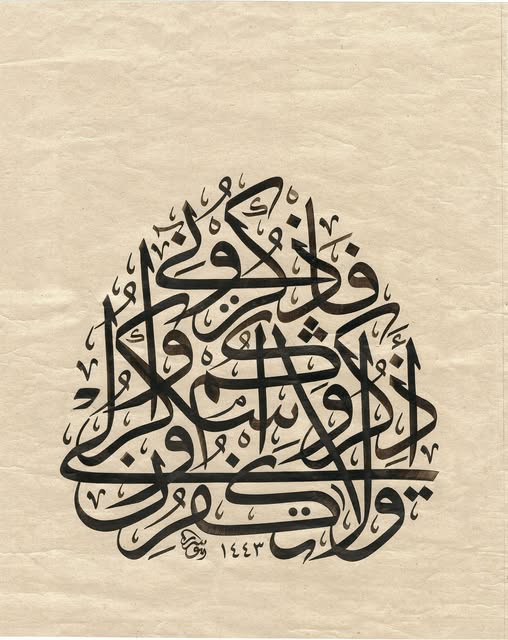 فَاذْكُرُونِي
أَذْكُرْكُمْ وَاشْكُرُوا لِي
وَلَا تَكْفُرُونِ
١٤٤٣